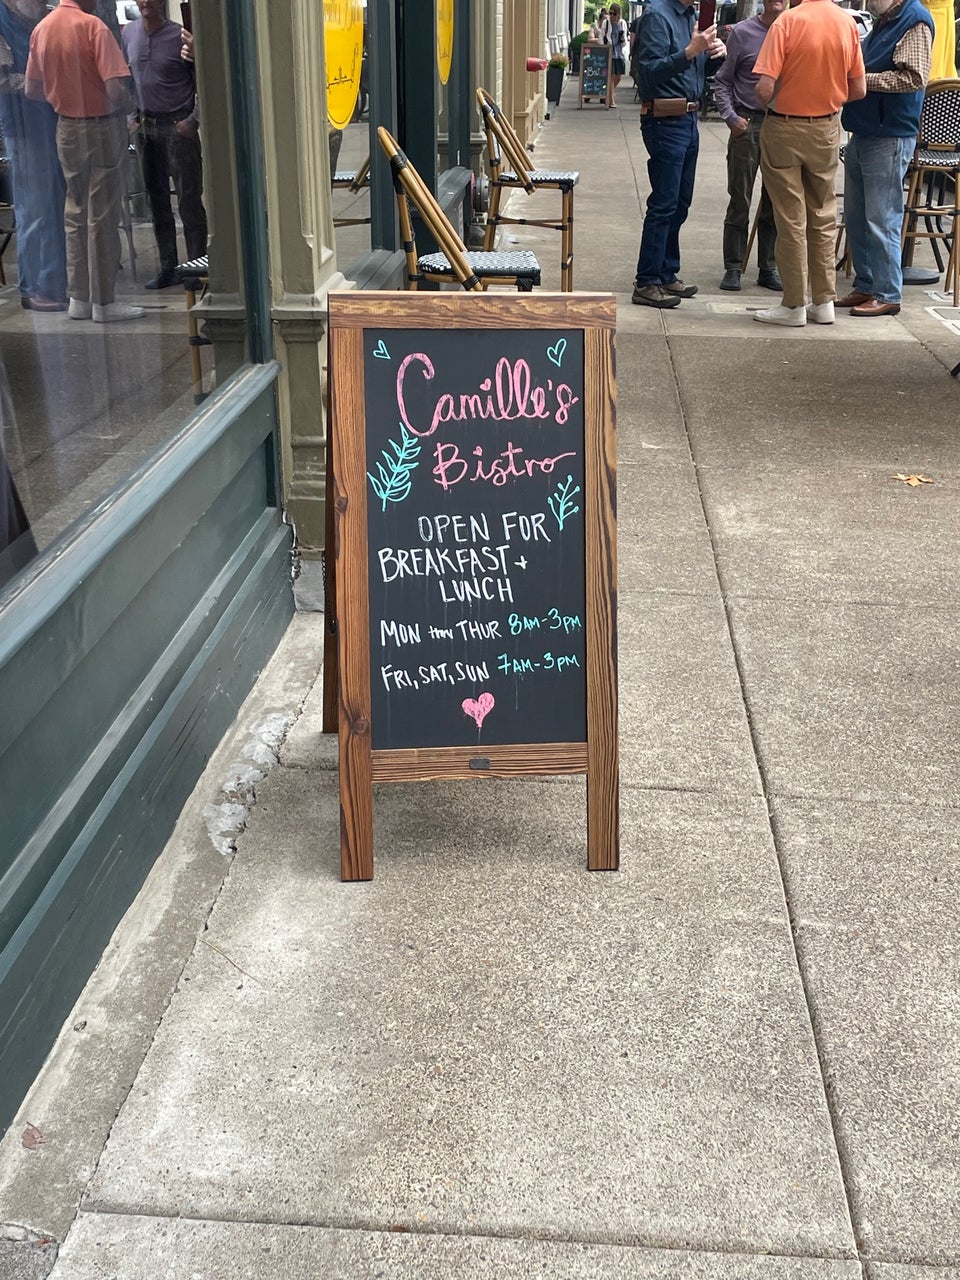 Camille's
Bistro
OPEN FOR
BREAKFAST +
LUNCH
MON thru THUR 8AM-3PM
FRI, SAT, SUN 7AM-3PM